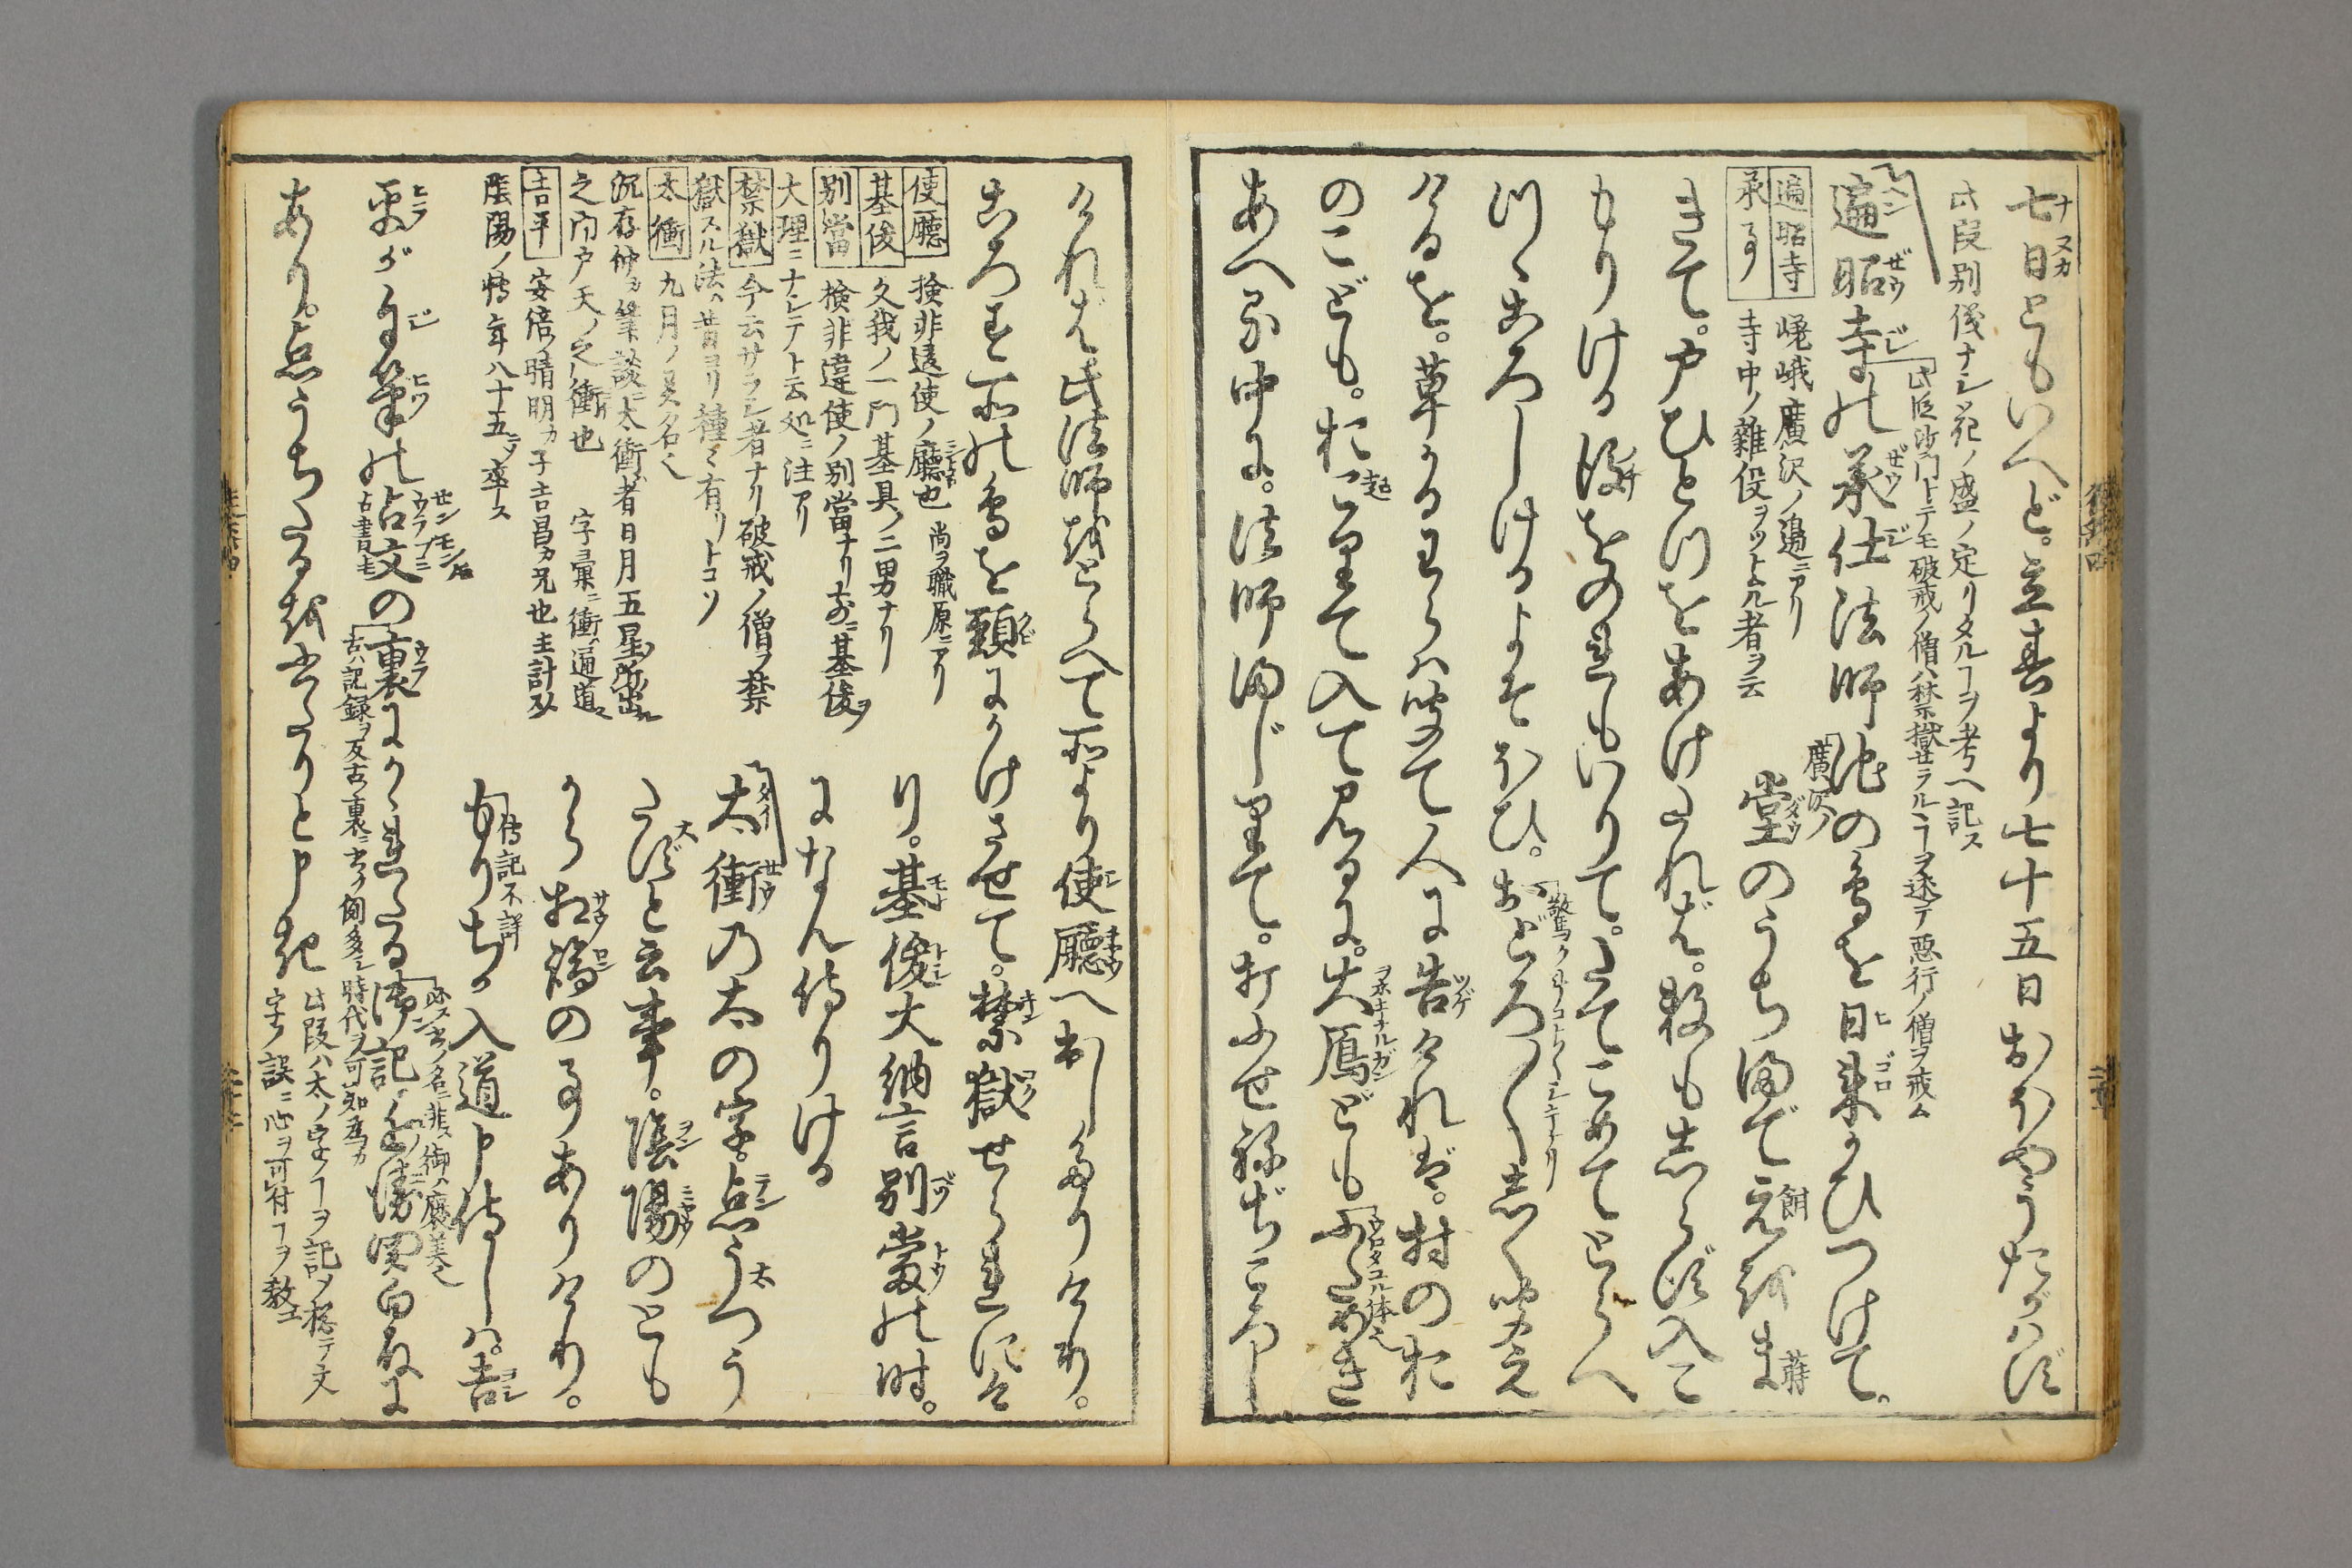 七日ともいへど。立春より七十五日おほやうたがはず
此段別儀ナシ花ノ盛ノ定リタルヿヲ考ヘ記ス
遍昭寺の承仕法師池の鳥を日来かひつけて。
此段沙門トテモ破戒ノ僧ハ禁獄セラルヽヿヲ述テ悪行ノ僧ヲ戒ム
遍昭寺 嵯峨廣沢ノ邉ニアリ
承事 寺中ノ雑役ヲツトムル者ヲ云
廣沢ノ
堂のうちまで餌をま
きて。戸ひとつをあけたれば。数もしらず入こ
もりける後をのれもいりて。たてこめてとらへ
つゝころしけるよそほひ。おどろ〳〵しく聞え
けるを。草かるわらは聞て人に告ければ。村のお
のこども。おこりて入て見るに。大鴈どもふためき
あへる中に。法師まじりて。打ふせねぢころし
ければ此法師をとらへて所より使廳へ出したりけり。
ころす所の鳥を頸にかけさせて。禁獄せられにけ
り。基俊大納言別當の時。
になん侍りける
使廳 検非違使ノ廳也 尚ヲ職原ニアリ
基俊 久我ノ一門基具ノ二男ナリ
別當 検非違使ノ別當ナリ前ニ基俊ヲ
大理ニナシテト云処ニ注アリ
禁獄 今云サラシ者ナリ破戒ノ僧ヲ禁
獄スル法ハ昔ヨリ種々有リトコソ
太衝 九月ノ異名也
沉存仲カ筆談ニ太衝者日月五星所出
之門戸天ノ之衝也 字彙ニ衝通道
吉平 安倍晴明カ子吉昌カ兄也主計頭
陰陽ノ博 年八十五ニテ卒ス
太衝の太の字。点うつう
たずと云事。陰陽のとも
がら相論の事ありけり。
もりちか入道申侍しは。吉
傳記不詳
平が自筆の占文の裏にかゝれたる御記。近衛関白殿に
古ハ記録ヲ反古ノ裏ニ書ク例多シ時代ヲ可知為カ
あり。点うちたるを書たりと申き
此段ハ太ノ字ノヿヲ記シ捴テ文
字ノ誤ニ心ヲ可付ヿヲ教エ